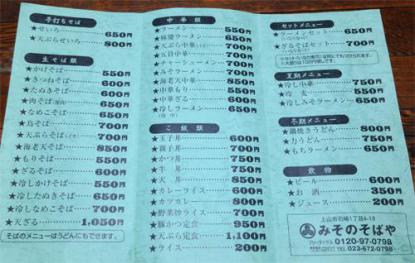 手打ちそば
★せいろ 650円
★天ぷらせいろ 800円
生そば類
★かけそば 550円
★きつねそば 600円
★たぬきそば 600円
★肉そば 650円
★なめこそば 650円
★鳥そば 700円
★天ぷらそば 700円
★海老天そば 800円
★もりそば 550円
★ざるそば 600円
★冷しかけそば 550円
★冷したぬきそば 650円
★冷しなめこそば 700円
★天ざる 1,050円
そばのメニューはうどんにもできます。
中華類
★ラーメン 550円
★味噌ラーメン 650円
★天ぷら中華 700円
★五目中華 700円
★チャーシューメン 700円
★みそラーメン 700円
★海老天中華 800円
★中華もり 550円
★中華ざる 600円
★冷しラーメン 650円
ご飯類
★玉子丼 600円
★親子丼 700円
★かつ丼 750円
★牛丼 750円
★天丼 850円
★カレーライス 600円
★カツカレー 800円
★野菜炒ライス 700円
★豚かつ定食 950円
★天ぷら定食 1,100円
★ライス 200円
セットメニュー
★ラーメンセット 650円
★ざるそばセット 700円
夏期メニュー
★冷し中華 750円
★冷麦 550円
★冷しみそラーメン 750円
冬期メニュー
★鍋焼きうどん 800円
★力うどん 750円
★もちラーメン 650円
飲物
★ビール 600円
★お酒 350円
★ジュース 200円
みそのそばや
0120-97-0798
TEL 023-672-0798